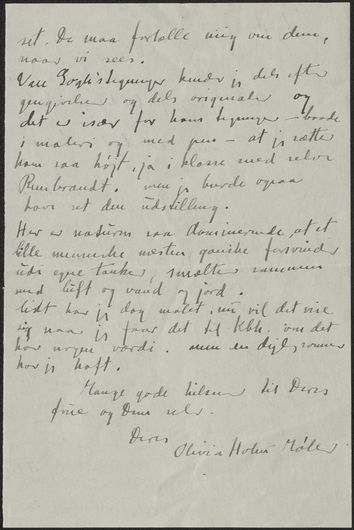 set. De maa fortælle mig om dem,
naar vi sees.
Van Goghs tegninger kender jeg dels efter
gengivelser og dels originaler og
det er især for hans tegninger – baade
i maleri og med pen – at jeg sætter
ham saa højt, ja i klasse med selve
Rembrandt. men jeg burde ogsaa
have set den udstilling.
Her er naturen saa dominerende, at et
lille menneske næsten ganske forsvinder
udi egne tanker, smelter sammen
med luft og vand og jord.
lidt har jeg dog malet, nu vil det vise
sig naar jeg faar det til Kbh. om det
har nogen værdi. men en dejlig sommer
har jeg haft.
Mange gode hilsner til Deres
frue og Dem selv.
Deres
Olivia Holm Møller